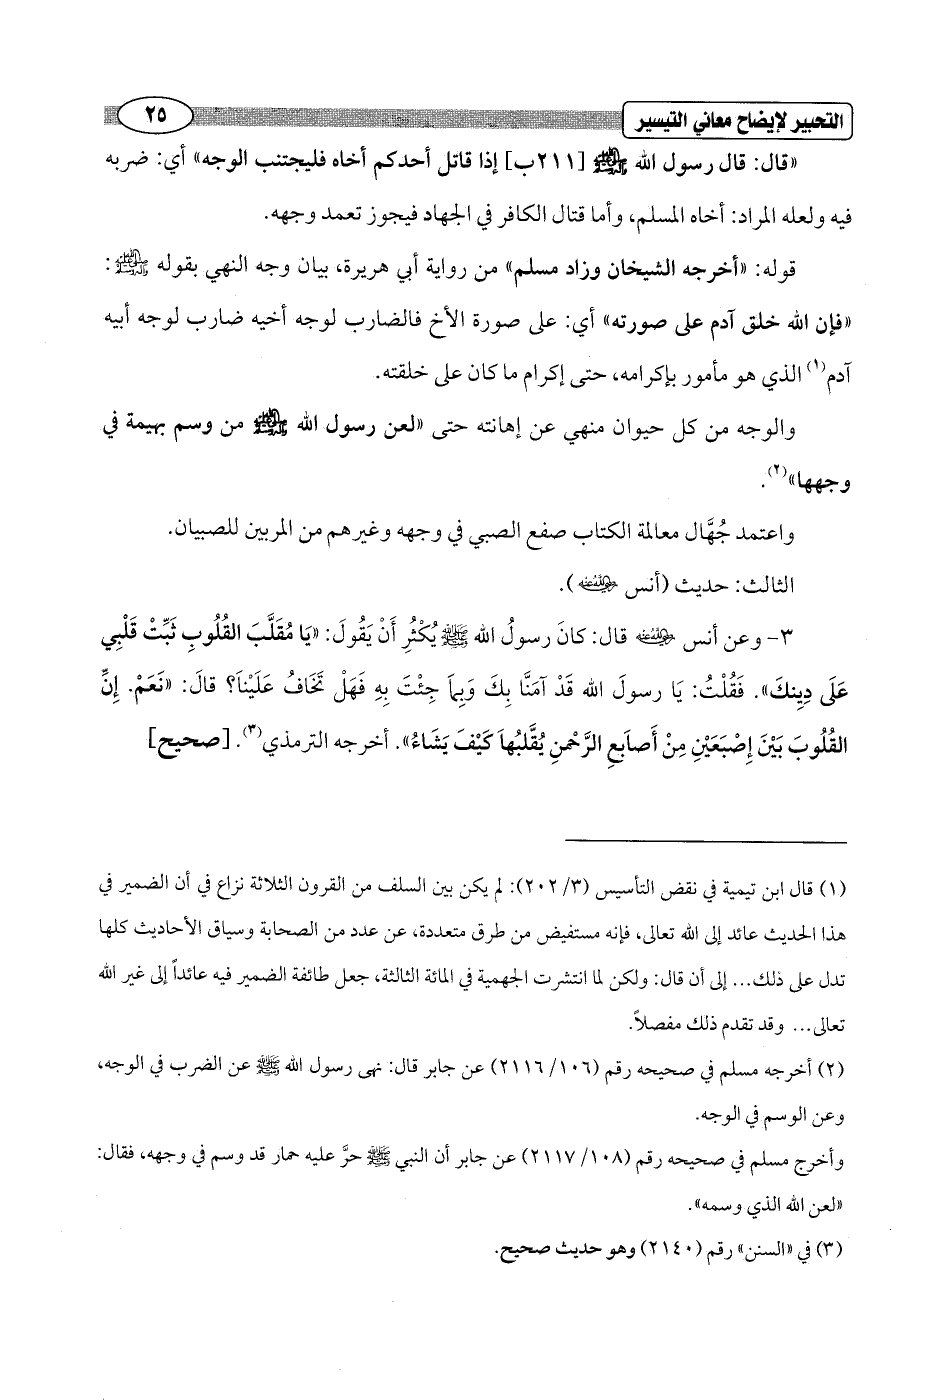 التحبير لإيضاح معاني التيسير
٢٥
«قال: قال رسول الله ﷺ [٢١١ب] إذا قاتل أحدكم أخاه فليجتنب الوجه» أي: ضربه
فيه ولعله المراد: أخاه المسلم، وأما قتال الكافر في الجهاد فيجوز تعمد وجهه.
قوله: «أخرجه الشيخان وزاد مسلم» من رواية أبي هريرة، بيان وجه النهي بقوله ﷺ:
«فإن الله خلق آدم على صورته» أي: على صورة الأخ فالضارب لوجه أخيه ضارب لوجه أبيه
آدم(١) الذي هو مأمور بإكرامه، حتى إكرام ما كان على خلقته.
والوجه من كل حيوان منهي عن إهانته حتى «لعن رسول الله ﷺ من وسم بهيمة في
وجهها»(٢).
واعتمد جُهَّال معالمة الكتاب صفع الصبي في وجهه وغيرهم من المربين للصبيان.
الثالث: حديث (أنس رضي الله عنه).
٣- وعن أنس رضي الله عنه قال: كانَ رسولُ الله ﷺ يُكْثِرُ أَنْ يَقُولَ: «يَا مُقَلَّبَ القُلُوبِ ثَبِّتْ قَلْبِي
عَلَى دِينِكَ». فَقُلْتُ: يَا رسولَ الله قَدْ آمَنَّا بِكَ وَبِمَا جِئْتَ بِهِ فَهَلْ تَخَافُ عَلَيْنَا؟ قالَ: «نَعَمْ. إِنَّ
القُلُوبَ بَيْنَ إِصْبَعَيْنِ مِنْ أَصَابِعِ الرَّحْمنِ يُقَلِّبُهاَ كَيْفَ يَشَاءُ». أخرجه الترمذي(٣). [صحيح]
(١) قال ابن تيمية في نقض التأسيس (٣/ ٢٠٢): لم يكن بين السلف من القرون الثلاثة نزاع في أن الضمير في
هذا الحديث عائد إلى الله تعالى، فإنه مستفيض من طرق متعددة، عن عدد من الصحابة وسياق الأحاديث كلها
تدل على ذلك... إلى أن قال: ولكن لما انتشرت الجهمية في المائة الثالثة، جعل طائفة الضمير فيه عائداً إلى غير الله
تعالى... وقد تقدم ذلك مفصلاً.
(٢) أخرجه مسلم في صحيحه رقم (١٠٦/ ٢١١٦) عن جابر قال: نهى رسول الله ﷺ عن الضرب في الوجه،
وعن الوسم في الوجه.
وأخرج مسلم في صحيحه رقم (١٠٨/ ٢١١٧) عن جابر أن النبي ﷺ حرَّ عليه حمار قد وسم في وجهه، فقال:
«لعن الله الذي وسمه».
(٣) في «السنن» رقم (٢١٤٠) وهو حديث صحيح.